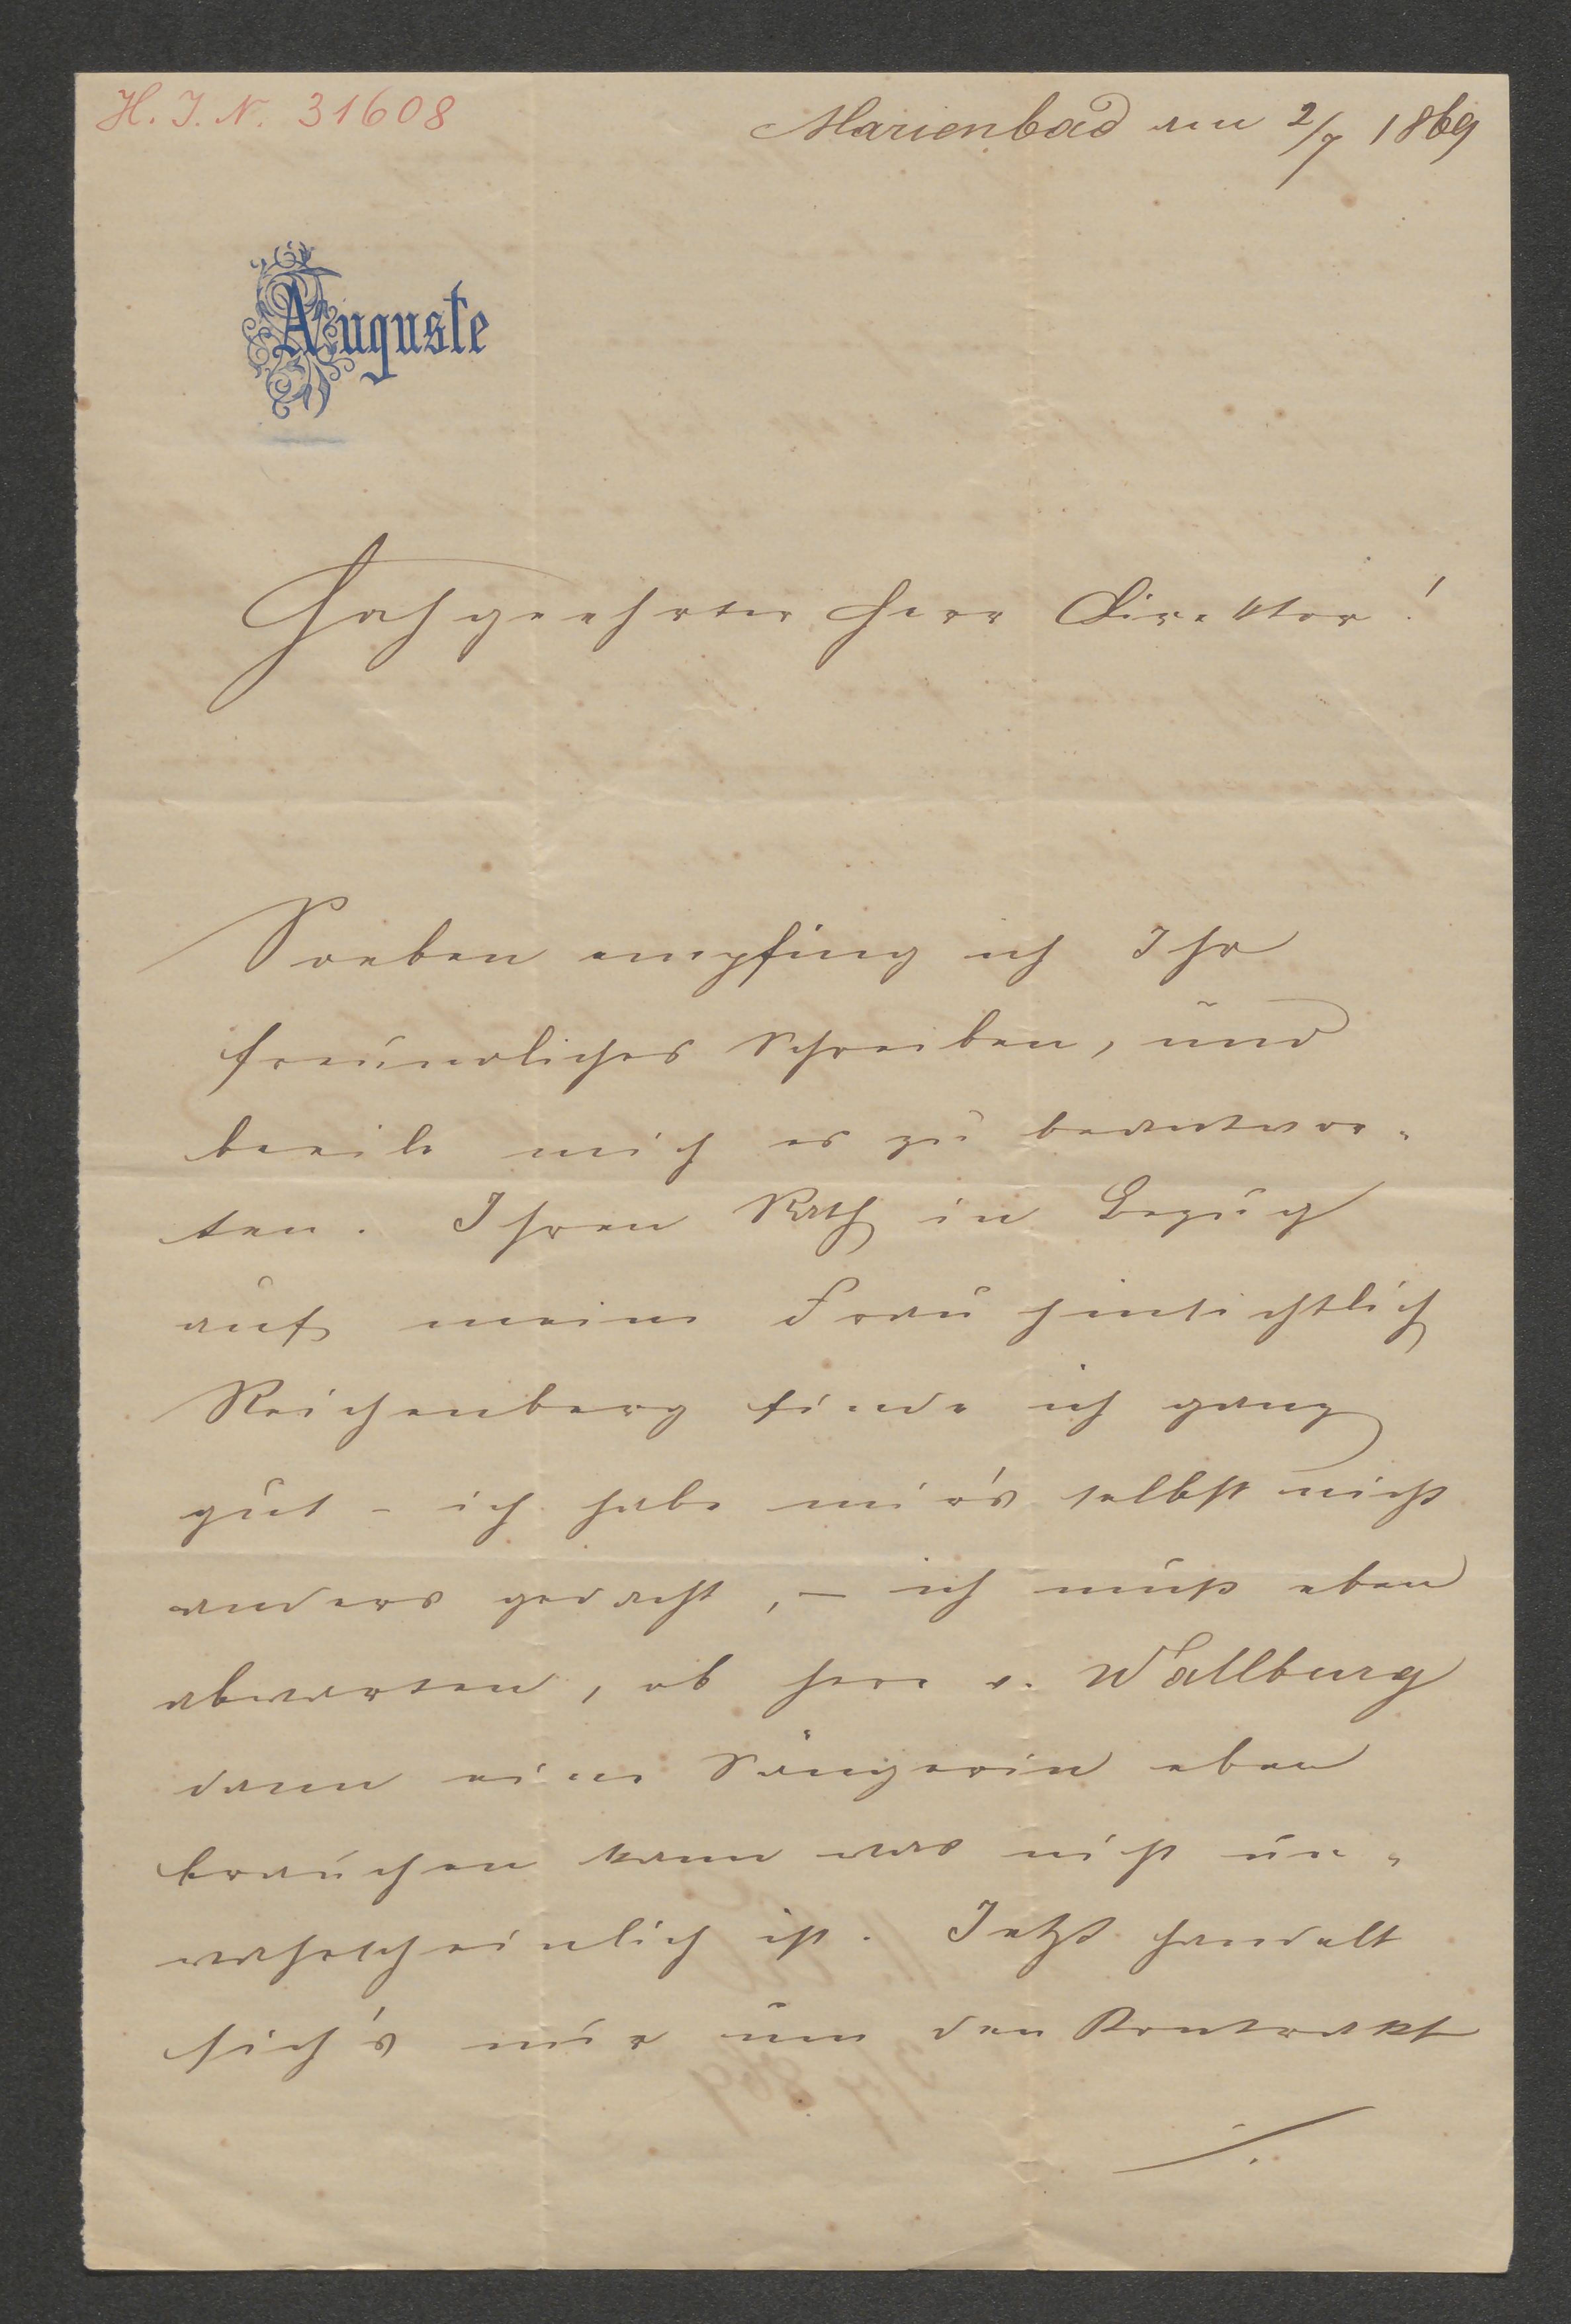 H. I. N. 31608
Marienbad am 2/7 1869
Auguste
Hochgeehrter Herr Direktor!
Soeben empfing ich Ihr
freundliches Schreiben, und
beeile mich es zu beantwor-
ten. Ihren Rath in Bezug
auf meine Frau hinsichtlich
Reichenberg finde ich ganz
gut – ich habe mir's selbst nicht
anders gedacht, – ich muß eben
abwarten, ob Herr v. Wallburg
dann eine Sängerin eben
brauchen kann was nicht un-
wahrscheinlich ist. Jetzt handelt
sich's nur um den Kontrakt
./.